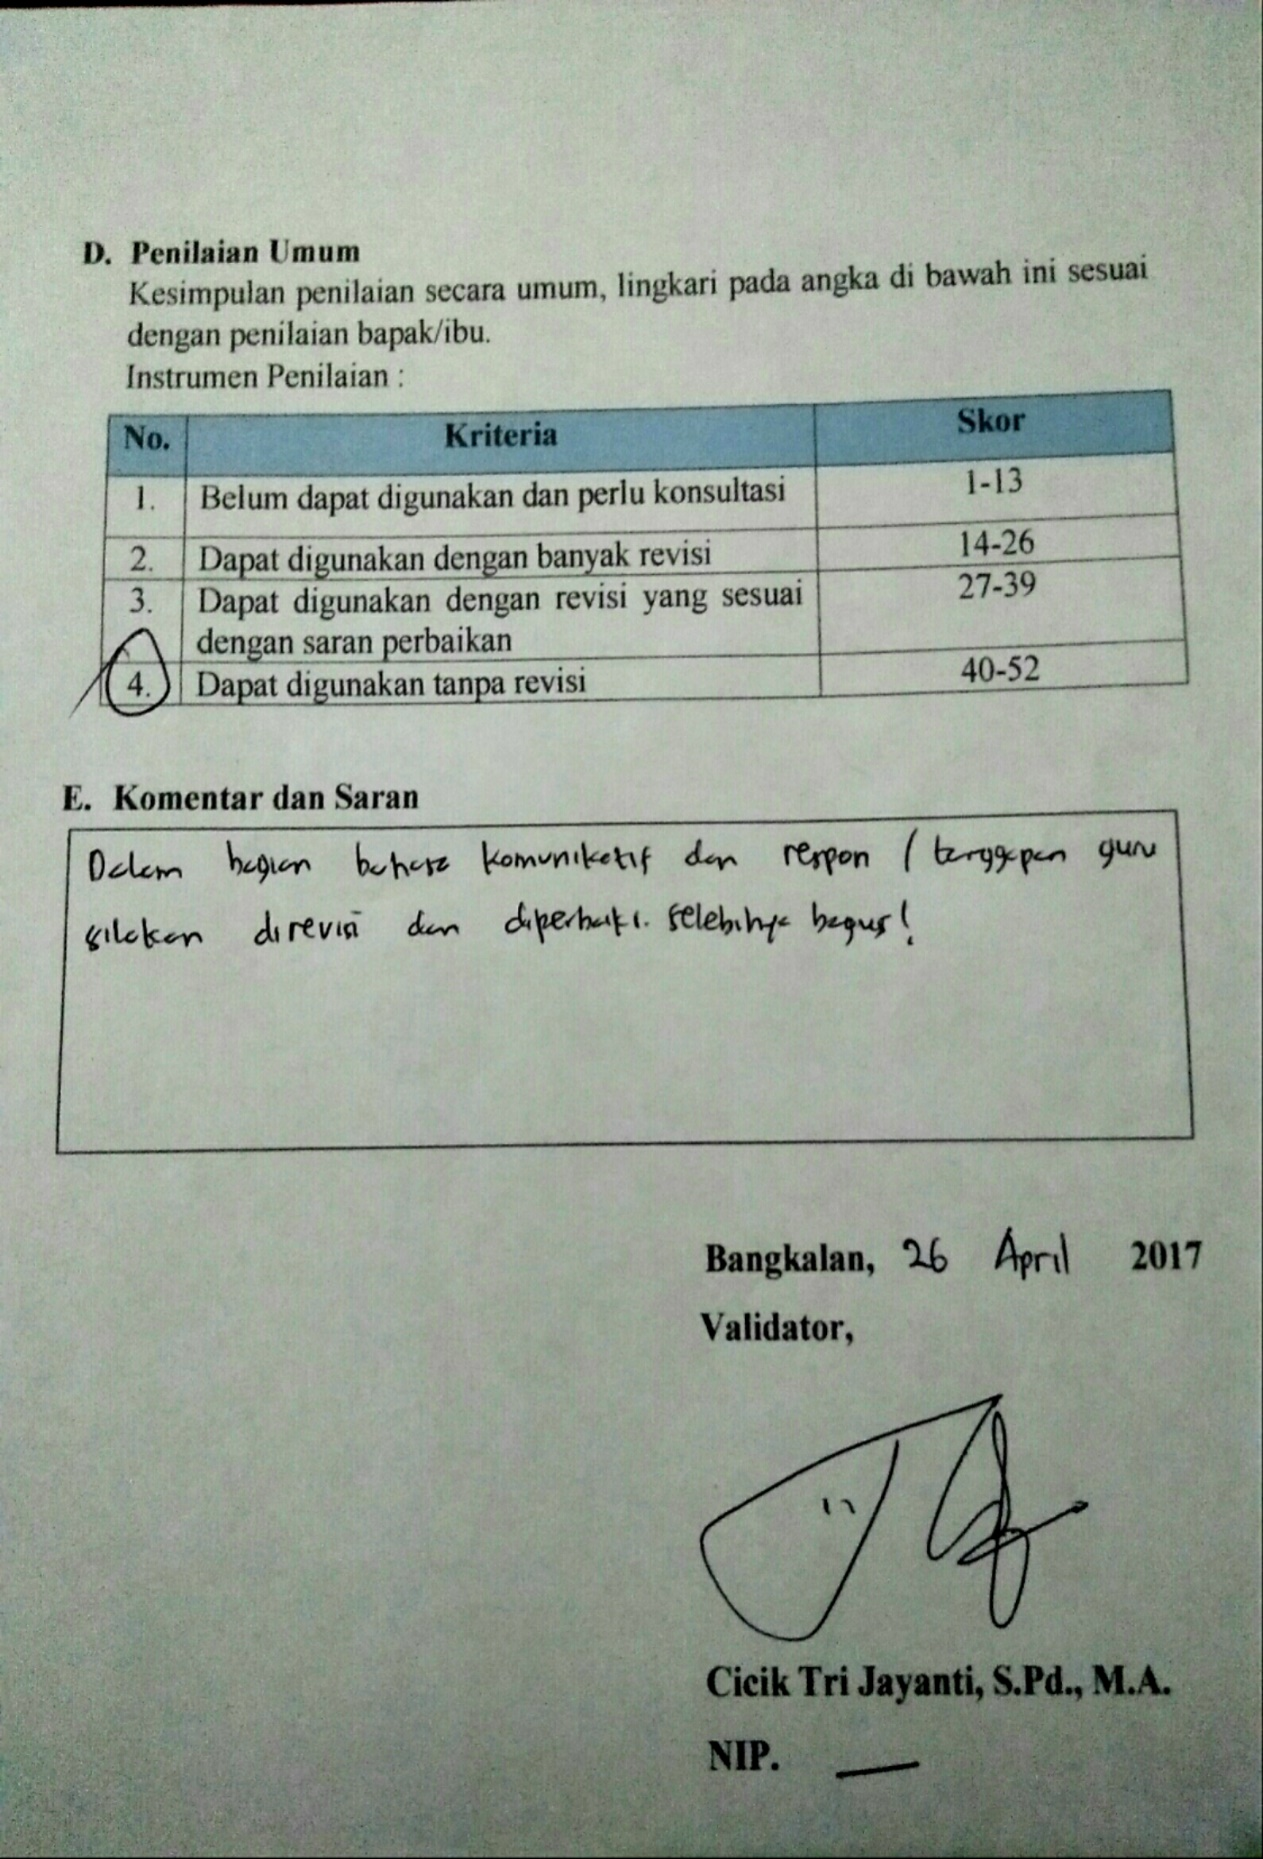 D. Penilaian Umum
Kesimpulan penilaian secara umum, lingkari pada angka di bawah ini sesuai
dengan penilaian bapak/ibu.
Instrumen Penilaian :
No. Kriteria Skor
1. Belum dapat digunakan dan perlu konsultasi 1-13
2. Dapat digunakan dengan banyak revisi 14-26
3. Dapat digunakan dengan revisi yang sesuai 27-39
dengan saran perbaikan
4. Dapat digunakan tanpa revisi 40-52
E. Komentar dan Saran
Dalam bagian bahasa komunikatif dan respon / tanggapan guru
silakan direvisi dan diperbaiki. Selebihnya bagus!
Bangkalan, 26 April 2017
Validator,
Cicik Tri Jayanti, S.Pd., M.A.
NIP. —